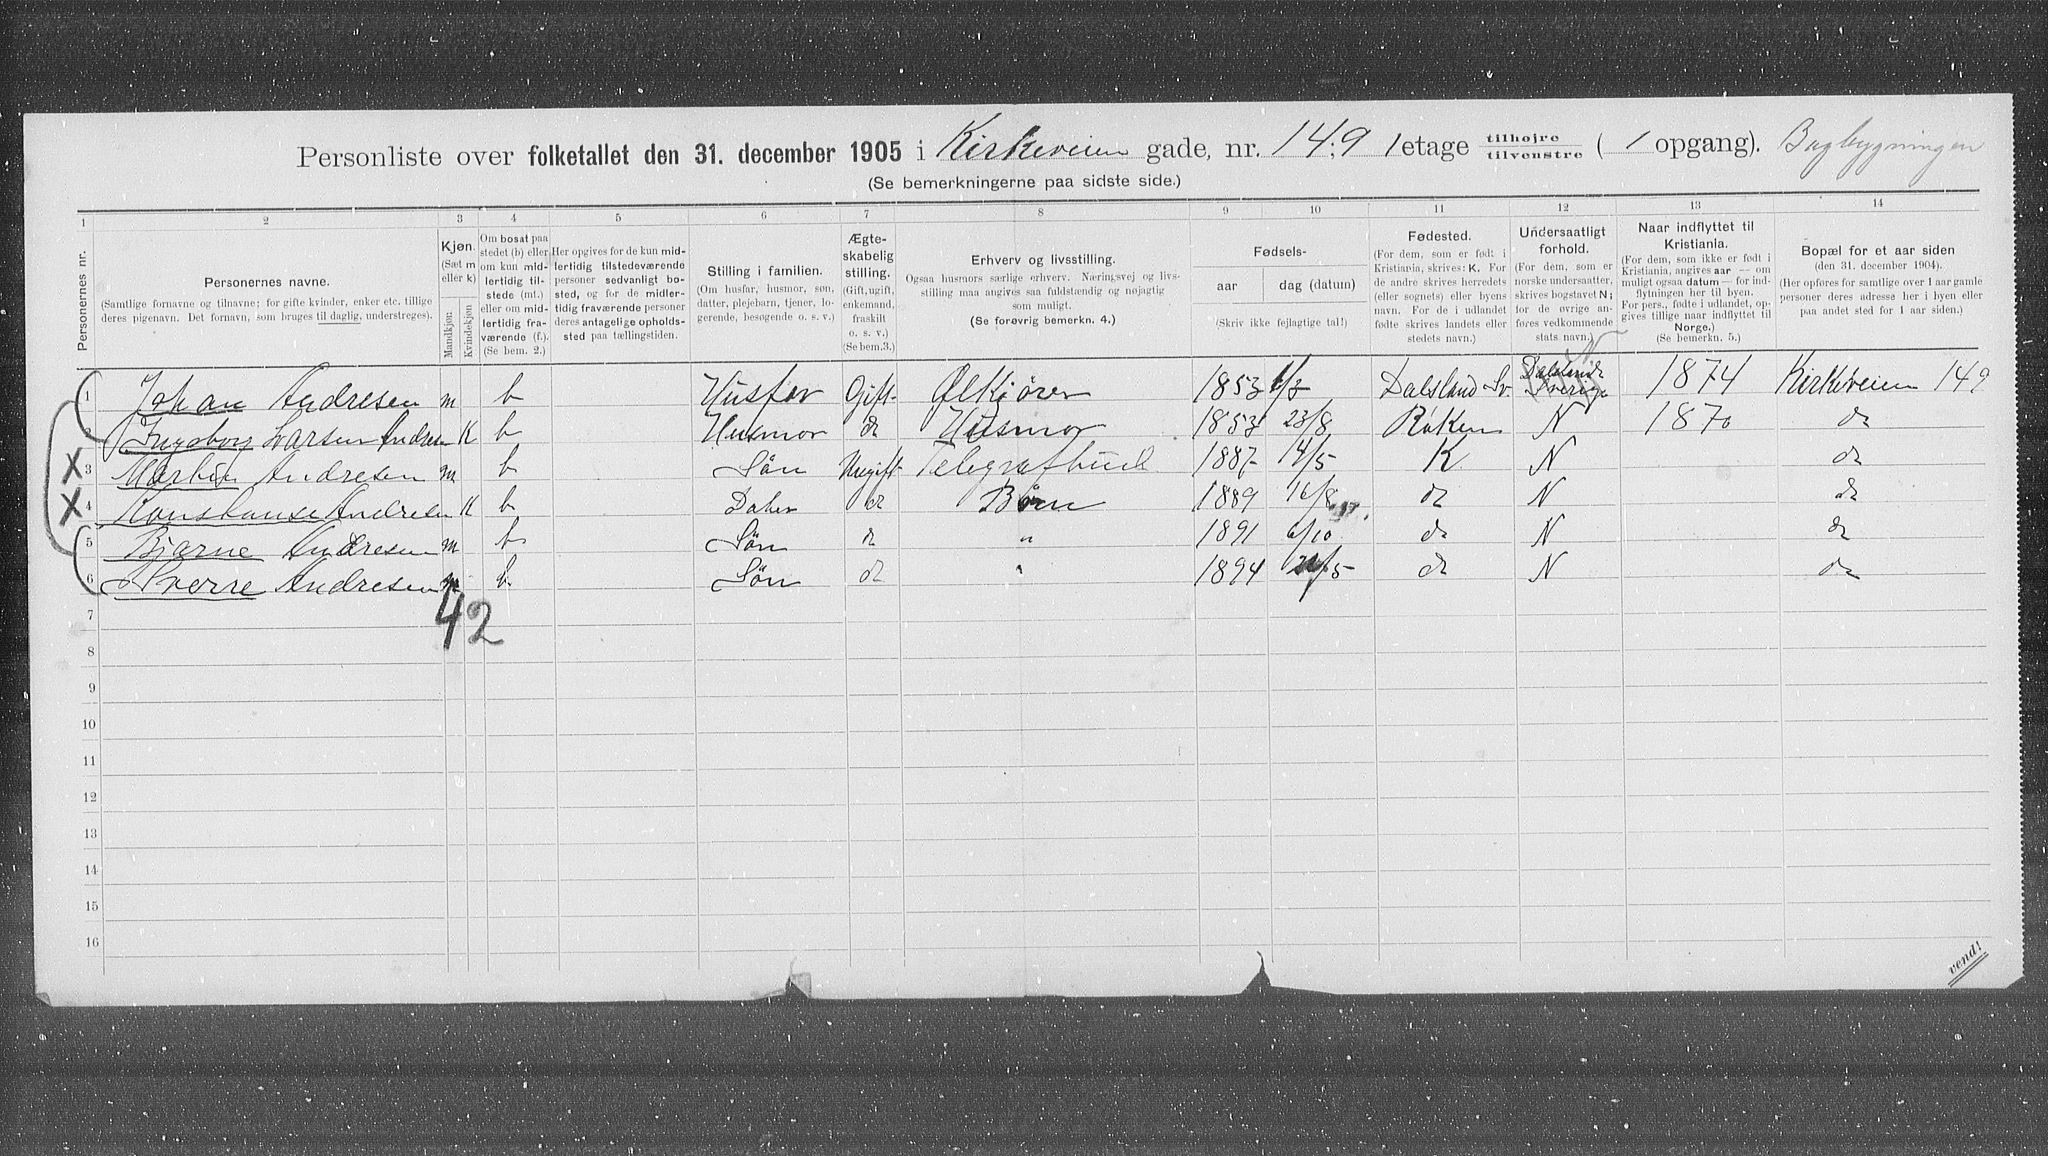 Personliste over folketallet den 31. december 1905 i Kirkeveien gade, nr. 149 1 etage tilhøjre / tilvenstre ( 1 opgang). Bagbygningen
(Se bemerkningerne paa sidste side.)
1 2 3 4 5 6 7 8 9 10 11 12 13 14
Personernes nr.
Personernes navne.
(Samtlige fornavne og tilnavne; for gifte kvinder, enker etc. tillige deres pigenavn. Det fornavn, som bruges til daglig, understreges).
Kjøn.
(Sæt m eller k)
Mandkjøn.
Kvindekjøn.
Om bosat paa stedet (b) eller om kun midlertidig tilstede (mt.) eller om midlertidig fraværende (f.). (Se bem. 2.)
Her opgives for de kun midlertidig tilstedeværende personer sedvanligt bosted, og for de midlertidig fraværende personer deres antagelige opholdssted paa tællingstiden.
Stilling i familien.
(Om husfar, husmor, søn, datter, plejebarn, tjener, logerende, besøgende o. s. v.)
Ægteskabelig stilling.
(Gift, ugift, enkemand, fraskilt o. s. v.)
(Se bem. 3.)
Erhverv og livsstilling.
Ogsaa husmors særlige erhverv. Næringsvej og livsstilling maa angives saa fuldstændig og nøjagtig som muligt.
(Se forøvrig bemerkn. 4.)
Fødsels-
aar
dag (datum)
(Skriv ikke fejlagtige tal!)
Fødested.
(For dem, som er født i Kristiania, skrives: K. For de andre skrives herredets (eller sognets) eller byens navn. For de i udlandet fødte skrives landets eller stedets navn.)
Undersaatligt forhold.
(For dem, som er norske undersaatter, skrives bogstavet N; for de øvrige anføres vedkommende stats navn.)
Naar indflyttet til Kristiania.
(For dem, som ikke er født i Kristiania, angives aar — om muligt ogsaa datum — for indflytningen her til byen. For pers., fødte i udlandet, opgives tillige naar indflyttet til Norge.)
(Se bemerkn. 5.)
Bopæl for et aar siden
(den 31. december 1904).
(Her opføres for samtlige over 1 aar gamle personer deres adresse her i byen eller paa andet sted for 1 aar siden.)
N
1 Johan Andresen m b Husfar Gift Ølkjører 1853 6/3 Dalsland Sv. Dalsland Sverige 1874 Kirkeveien 149
2 Ingeborg Larsen Andresen K b Husmor do Husmor 1853 23/8 Røken N 1870 do
X 3 Martin Andresen m b Søn Ugift Telegrafbud 1887 14/5 K N do
X 4 Konstanse Andresen K b Dater do Børn 1889 16/8 do N do
5 Bjarne Andresen m b Søn do " 1891 6/10 do N do
6 Sverre Andresen m b Søn do " 1894 /5 do N do
42
7
8
9
10
11
12
13
14
15
16
vend!